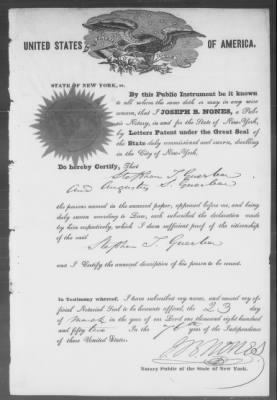 UNITED STATES OF AMERICA.
STATE OF NEW YORK, ss.
By this Public Instrument be it known
to all whom the same doth or may in any wise
concern, that I JOSEPH B. NONES, a Pub-
lic Notary, in and for the State of New-York,
by Letters Patent under the Great Seal of
the State duly commissioned and sworn, dwelling
in the City of New-York,
Do hereby Certify, That
Stephen T
And Augustus S.
the persons named in the annexed paper, appeared before me, and being
duly sworn according to Law, each subscribed the declaration made
by him respectively, which I deem sufficient proof of the citizenship
of the said
Stephen T
and I Certify the annexed description of his person to be correct.
In Testimony whereof, I have subscribed my name, and caused my of-
ficial Notarial Seal to be hereunto affixed, the 23 day
of March in the year of our Lord one thousand eight hundred
and fifty two In the 76th year of the Independence
of these United States.
J B NONES
Notary Public of the State of New York.